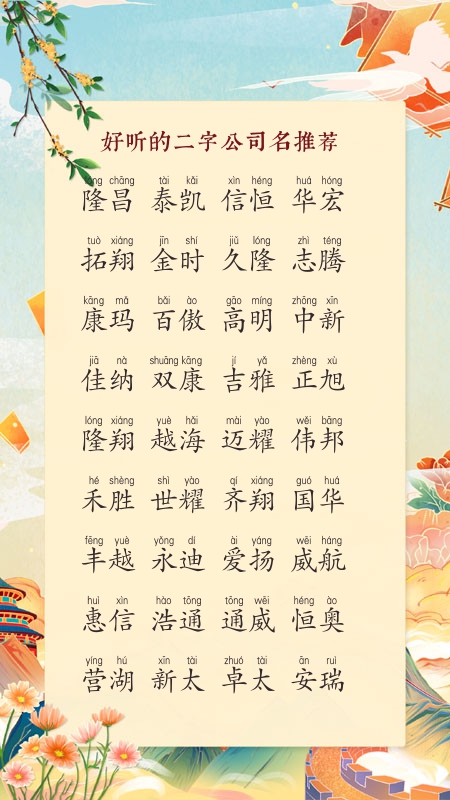 好听的二字公司名推荐
lóng chāng tài kǎi xìn héng huá hóng
隆昌 泰凯 信恒 华宏
tuò xiáng jīn shí jiǔ lóng zhì téng
拓翔 金时 久隆 志腾
kāng mǎ bǎi ào gāo míng zhōng xīn
康玛 百傲 高明 中新
jiā nà shuāng kāng jí yǎ zhèng xù
佳纳 双康 吉雅 正旭
lóng xiáng yuè hǎi mài yào wěi bāng
隆翔 越海 迈耀 伟邦
hé shèng shì yào qí xiáng guó huá
禾胜 世耀 齐翔 国华
fēng yuè yǒng dí ài yáng wēi háng
丰越 永迪 爱扬 威航
huì xìn hào tōng tōng wēi héng ào
惠信 浩通 通威 恒奥
yíng hú xīn tài zhuó tài ān ruì
营湖 新太 卓太 安瑞